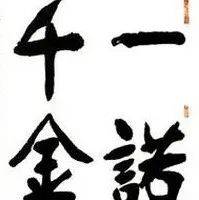 一諾
千金